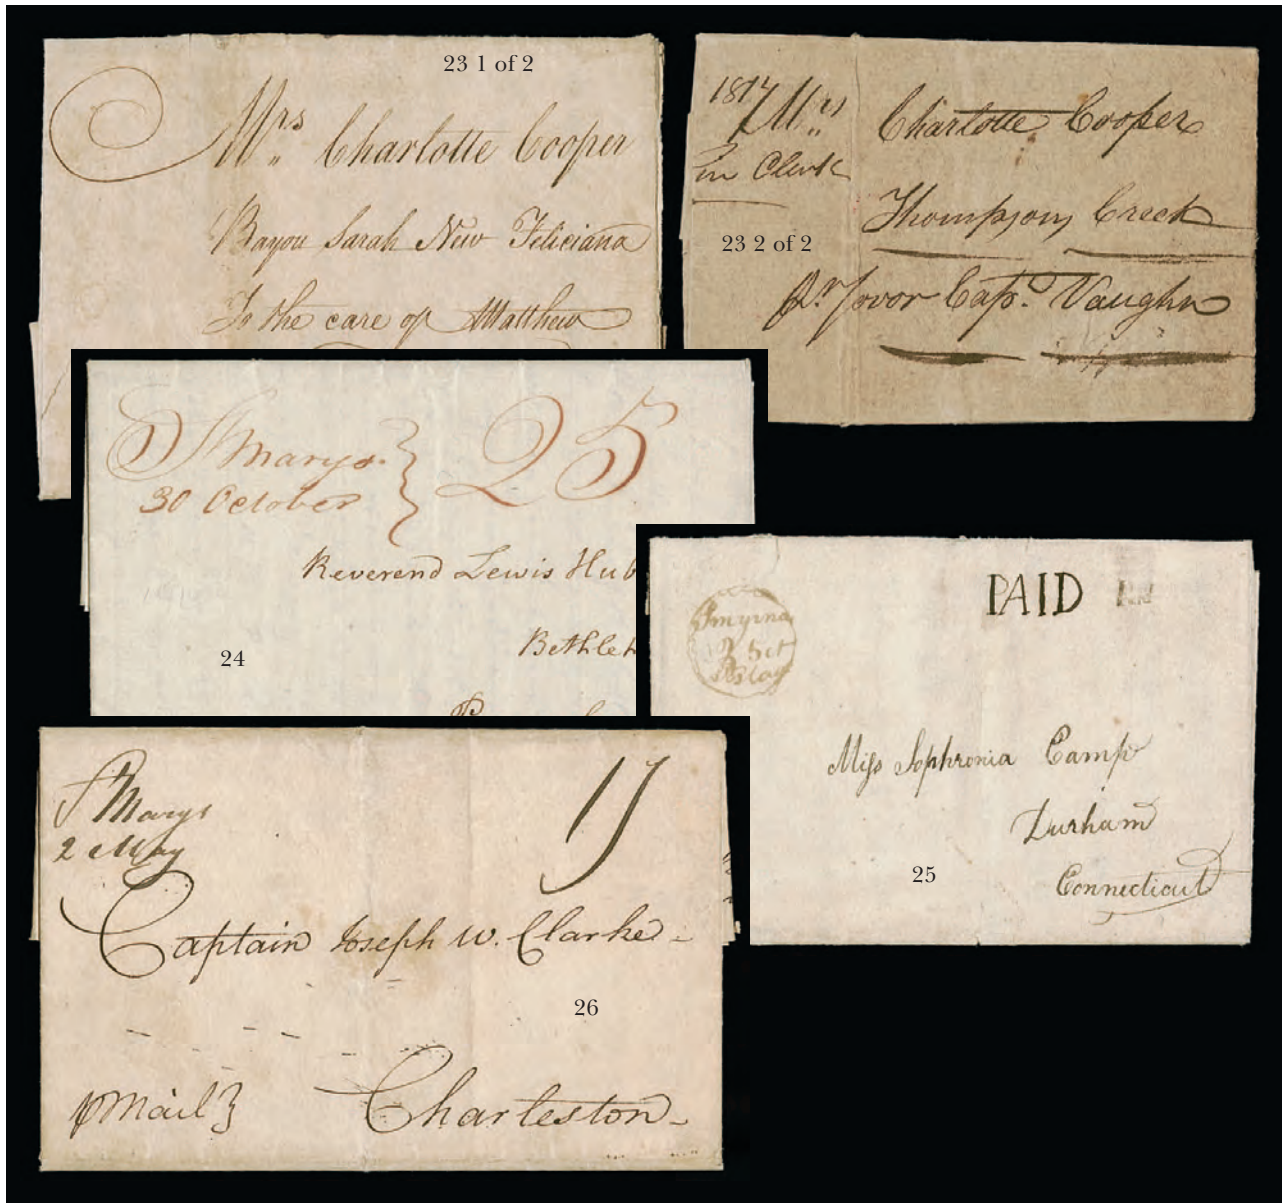 23 1 of 2
Mrs Charlotte Cooper
Bayou Sarah New Feliciana
To the care of Matthew
Mrs Charlotte Cooper
in
Thompson Creek
23 2 of 2
pr favor Capt. Vaughn
St Marys
30 October
25
Reverend Lewis Hub
Bethleh
24
PAID
Smyrna
Miss Sophronia Camp
Durham
Connecticut
25
St Marys
2 May
17
Captain Joseph W. Clarke
26
p Mail
Charleston